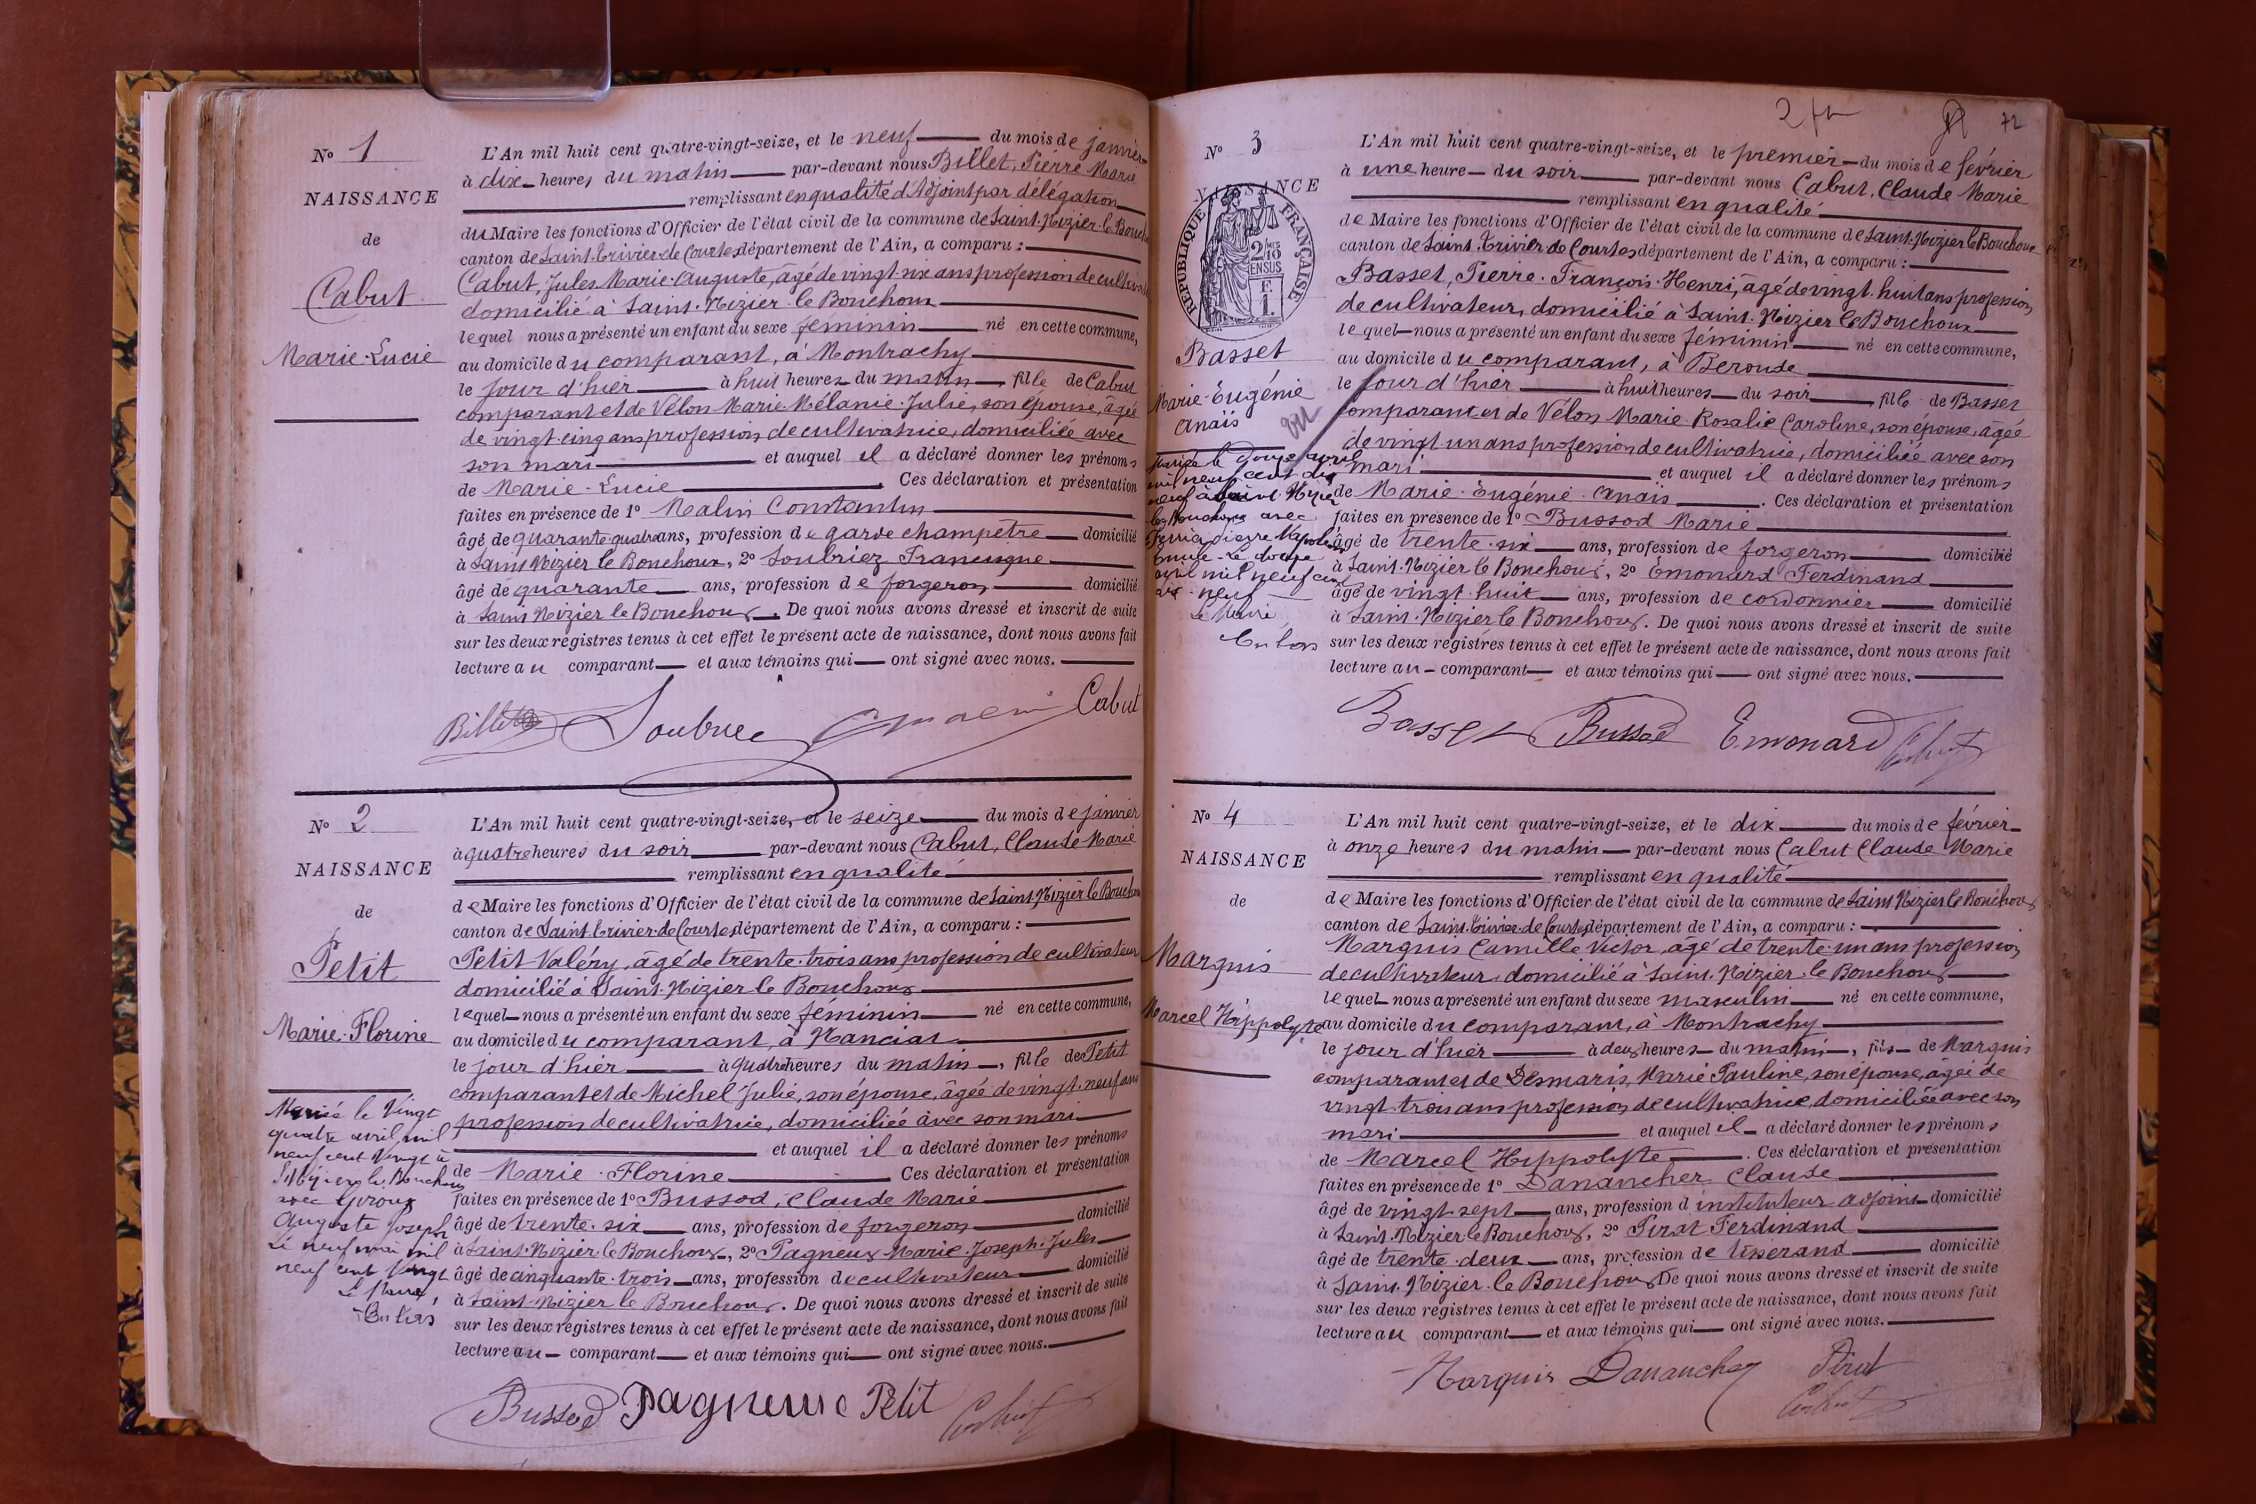 N° 1
NAISSANCE
de
Cabut
Marie-Lucie
L'An mil huit cent quatre-vingt-seize, et le neuf du mois de janvier
à dix heures du matin par-devant nous Billet, Pierre Marie
remplissant en qualité d'Adjoint par délégation
du Maire les fonctions d'Officier de l'état civil de la commune de Saint-Nizier-le-Bouchoux
canton de Saint-Trivier-de-Courtes département de l'Ain, a comparu :
Cabut, Jules Marie-Auguste, âgé de vingt-six ans profession de cultivateur
domicilié à Saint-Nizier-le-Bouchoux
lequel nous a présenté un enfant du sexe féminin né en cette commune,
au domicile du comparant, à Montrachy
le jour d'hier à huit heures du matin, fille de Cabut
comparant et de Vélon Marie Mélanie-Julie, son épouse, âgée
de vingt-cinq ans profession de cultivatrice, domiciliée avec
son mari et auquel il a déclaré donner les prénoms
de Marie-Lucie. Ces déclaration et présentation
faites en présence de 1° Malin Constantin
âgé de quarante-quatre ans, profession de garde champêtre domicilié
à Saint-Nizier le Bouchoux, 2° Soubriez
âgé de quarante ans, profession de forgeron domicilié
à Saint-Nizier le Bouchoux. De quoi nous avons dressé et inscrit de suite
sur les deux registres tenus à cet effet le présent acte de naissance, dont nous avons fait
lecture au comparant et aux témoins qui ont signé avec nous.
Billet Cabut
N° 2
NAISSANCE
de
Petit
Marie-Florine
Mariée le Vingt
quatre avril mil
neuf cent Vingt à
St Nizier le Bouchoux
avec Giroux
Auguste Joseph
Le neuf mai mil
neuf cent Vingt
Le Maire,
L'An mil huit cent quatre-vingt-seize, et le seize du mois de janvier
à quatre heures du soir par-devant nous Cabut, Claude Marie
remplissant en qualité
de Maire les fonctions d'Officier de l'état civil de la commune de Saint-Nizier le Bouchoux
canton de Saint-Trivier-de-Courtes département de l'Ain, a comparu :
Petit Valéry, âgé de trente-trois ans profession de cultivateur
domicilié à Saint-Nizier-le-Bouchoux
lequel nous a présenté un enfant du sexe féminin né en cette commune,
au domicile du comparant, à Nanciat
le jour d'hier à quatre heures du matin, fille de Petit
comparant et de Michel Julie, son épouse, âgée de vingt-neuf ans
profession de cultivatrice, domiciliée avec son mari
et auquel il a déclaré donner les prénoms
de Marie-Florine Ces déclaration et présentation
faites en présence de 1° Bussod, Claude Marie
âgé de trente-six ans, profession de forgeron domicilié
à Saint-Nizier-le-Bouchoux, 2° Pagneux Marie-Joseph-Jules
âgé de cinquante-trois ans, profession de cultivateur domicilié
à Saint-Nizier le Bouchoux. De quoi nous avons dressé et inscrit de suite
sur les deux registres tenus à cet effet le présent acte de naissance, dont nous avons fait
lecture au comparant et aux témoins qui ont signé avec nous.
Bussod Pagneux Petit Cabut
72
N° 3
NAISSANCE
RÉPUBLIQUE FRANÇAISE
Basset
Marie-Eugénie
Anaïs
vu
Mariée le douze avril
mil neuf cent dix
neuf à Saint-Nizier
le Bouchoux avec
Pierre Napoléon
Emile. Le douze
avril mil neuf cent
dix-neuf
Le Maire
L'An mil huit cent quatre-vingt-seize, et le premier du mois de février
à une heure du soir par-devant nous Cabut, Claude Marie
remplissant en qualité
de Maire les fonctions d'Officier de l'état civil de la commune de Saint-Nizier le Bouchoux
canton de Saint-Trivier de Courtes département de l'Ain, a comparu :
Basset, Pierre-François-Henri, âgé de vingt-huit ans profession
de cultivateur, domicilié à Saint-Nizier le Bouchoux
lequel nous a présenté un enfant du sexe féminin né en cette commune,
au domicile du comparant, à Beroude
le jour d'hier à huit heures du soir, fille de Basset
comparant et de Vélon Marie Rosalie Caroline, son épouse, âgée
de vingt un ans profession de cultivatrice, domiciliée avec son
mari et auquel il a déclaré donner les prénoms
de Marie-Eugénie-Anaïs. Ces déclaration et présentation
faites en présence de 1° Bussod Marie
âgé de trente-six ans, profession de forgeron domicilié
à Saint-Nizier le Bouchoux, 2° Emonard Ferdinand
âgé de vingt-huit ans, profession de cordonnier domicilié
à Saint-Nizier le Bouchoux. De quoi nous avons dressé et inscrit de suite
sur les deux registres tenus à cet effet le présent acte de naissance, dont nous avons fait
lecture au comparant et aux témoins qui ont signé avec nous.
Basset Bussod Emonard Cabut
N° 4
NAISSANCE
de
Marquis
Marcel Hippolyte
L'An mil huit cent quatre-vingt-seize, et le dix du mois de février
à onze heures du matin par-devant nous Cabut Claude Marie
remplissant en qualité
de Maire les fonctions d'Officier de l'état civil de la commune de Saint-Nizier le Bouchoux
canton de Saint-Trivier-de-Courtes département de l'Ain, a comparu :
Marquis Camille Victor âgé de trente-un ans profession
de cultivateur, domicilié à Saint-Nizier-le-Bouchoux
lequel nous a présenté un enfant du sexe masculin né en cette commune,
au domicile du comparant, à Montrachy
le jour d'hier à deux heures du matin, fils de Marquis
comparant et de Desmaris, Marie Pauline, son épouse, âgée de
vingt-trois ans profession de cultivatrice, domiciliée avec son
mari et auquel il a déclaré donner les prénoms
de Marcel Hippolyte. Ces déclaration et présentation
faites en présence de 1° Danancher Claude
âgé de vingt-sept ans, profession d'instituteur adjoint domicilié
à Saint-Nizier le Bouchoux, 2° Pirat Ferdinand
âgé de trente-deux ans, profession de tisserand domicilié
à Saint-Nizier-le-Bouchoux De quoi nous avons dressé et inscrit de suite
sur les deux registres tenus à cet effet le présent acte de naissance, dont nous avons fait
lecture au comparant et aux témoins qui ont signé avec nous.
Marquis Danancher Pirat
Cabut